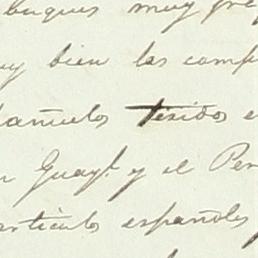 buques muy fre
uy bien los comp
añuelos tegidos e
n Guayl. y el Per
artículos españoles